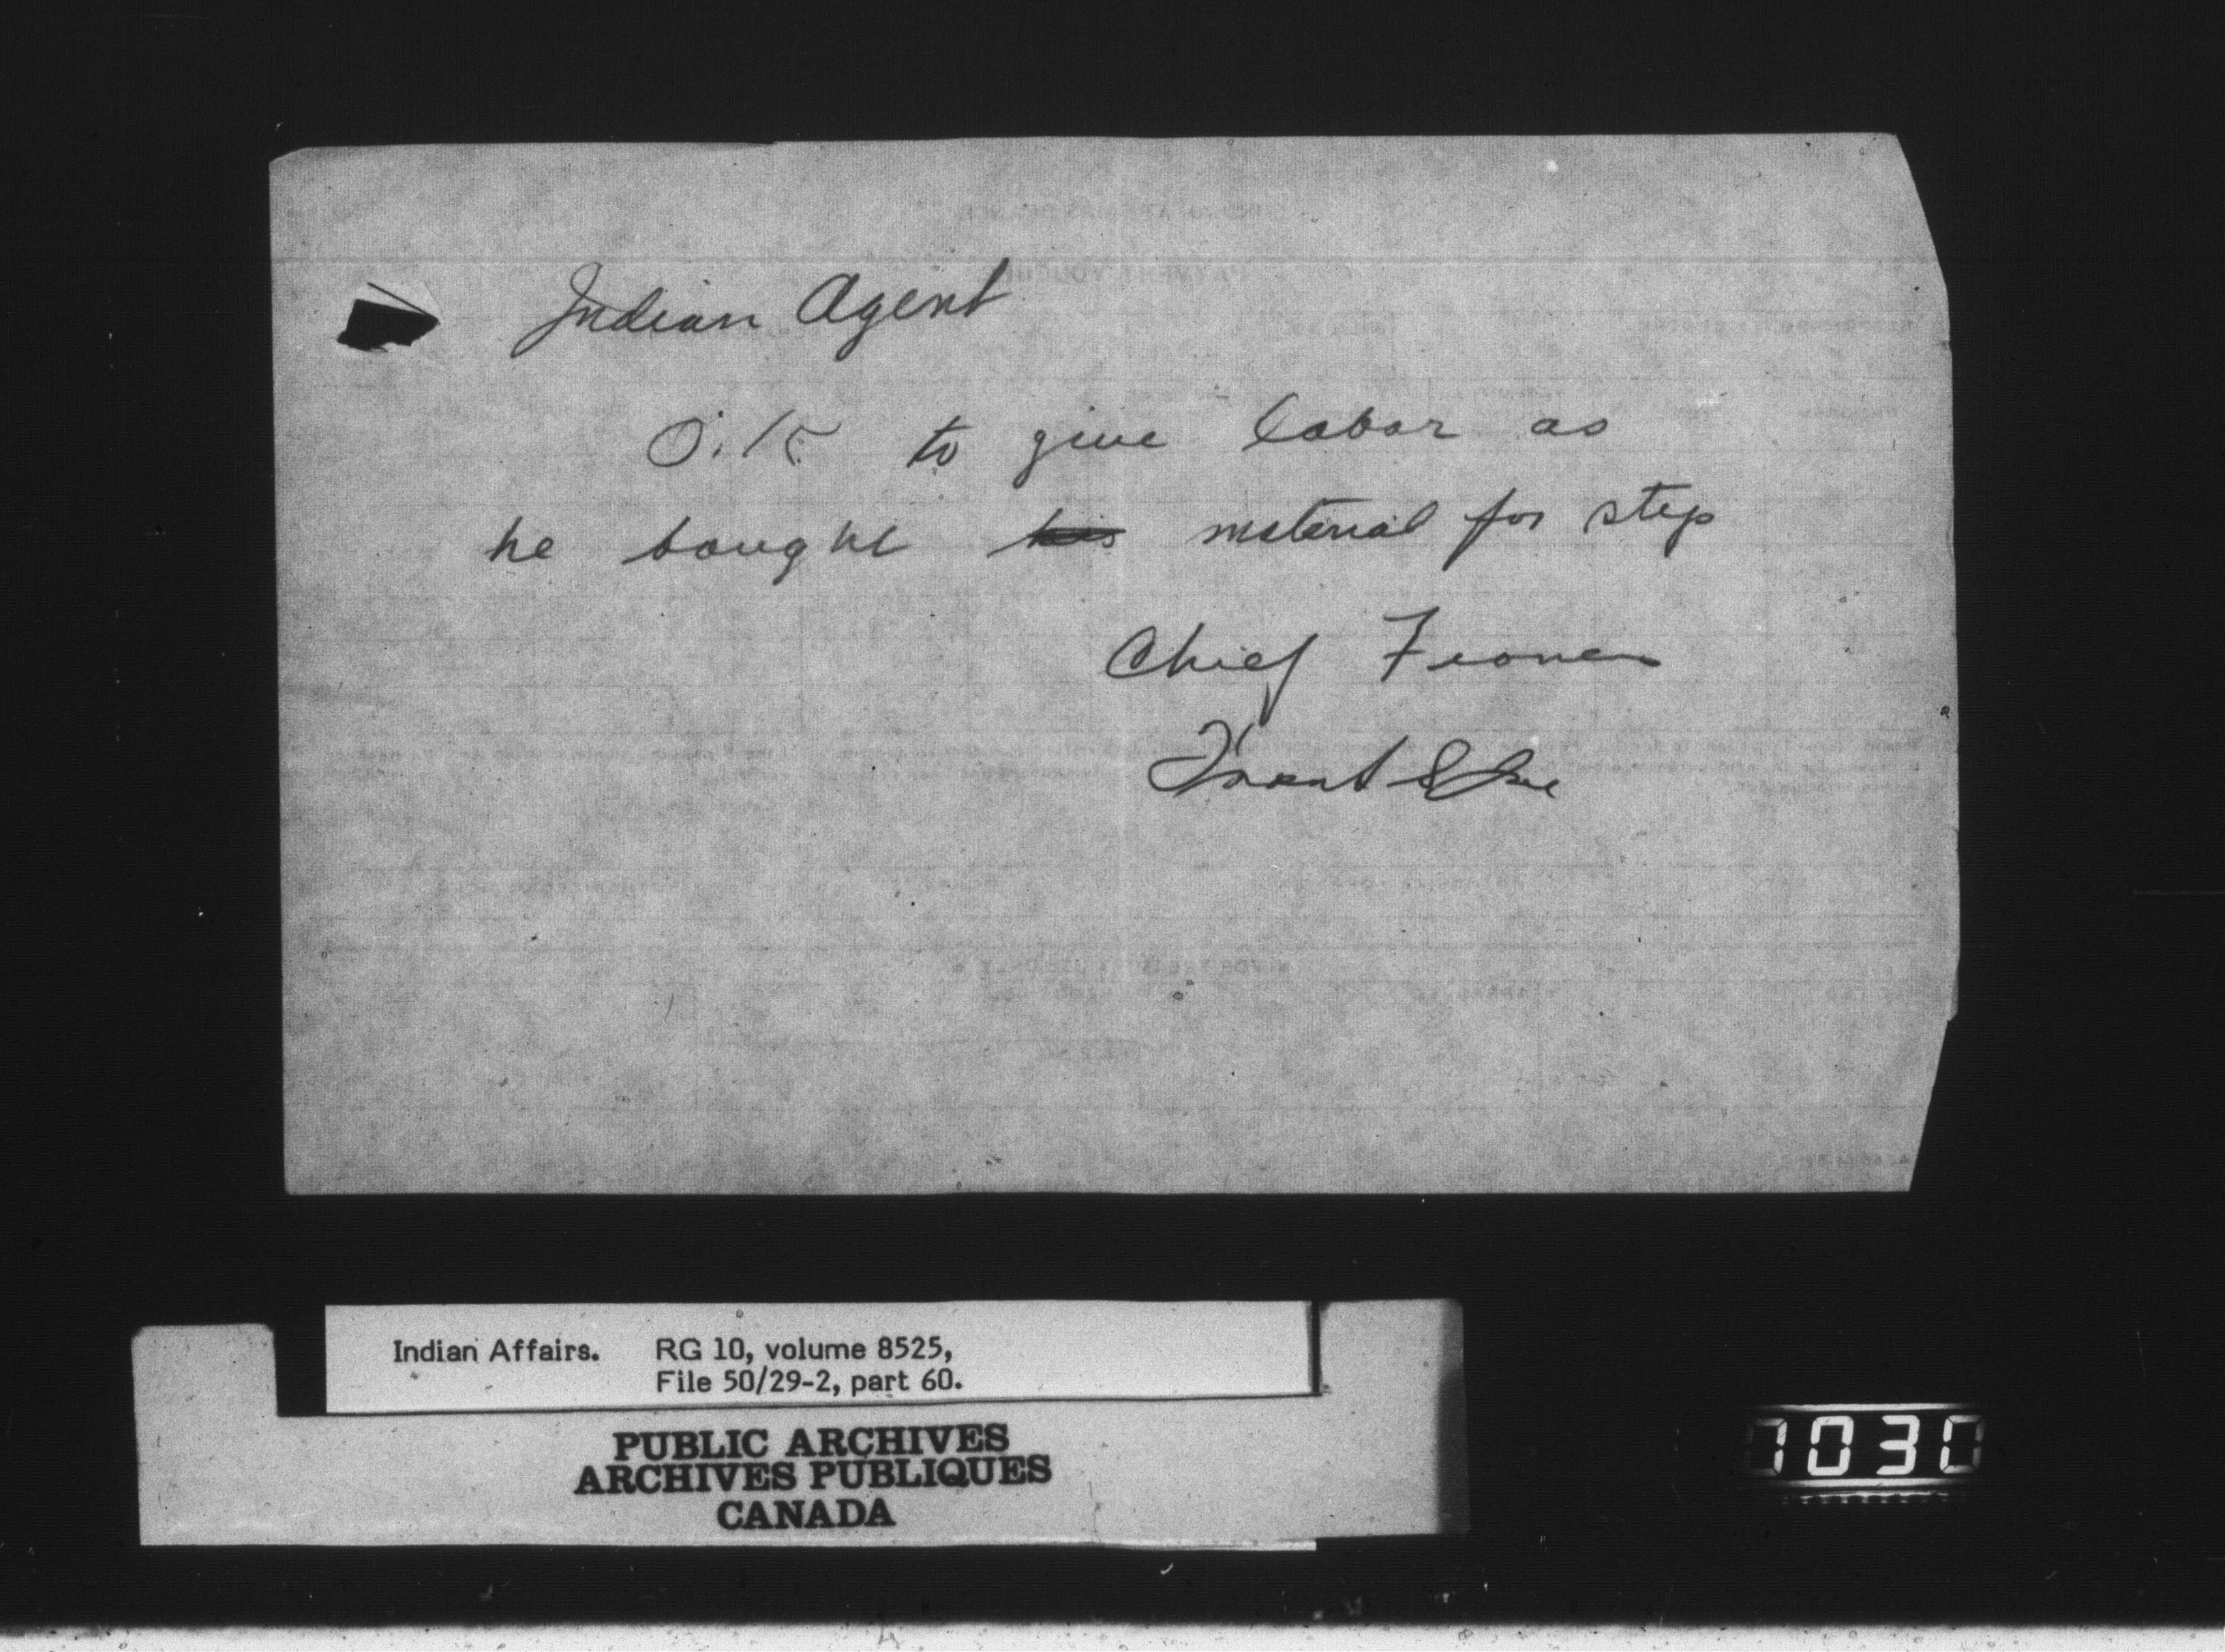 Indian Agent
O.K to give labor as
he bought his material for step
Chief
Indian Affairs. RG 10, volume 8525,
File 50/29-2, part 60.
PUBLIC ARCHIVES
ARCHIVES PUBLIQUES
CANADA
1030